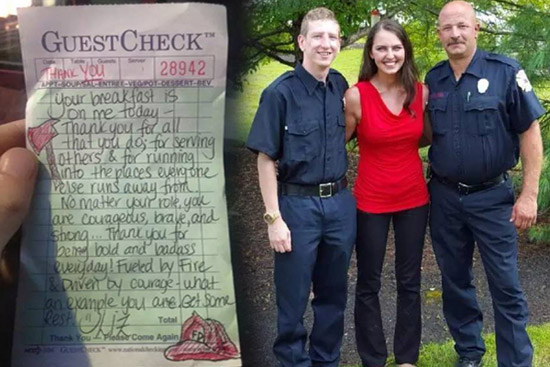 GUESTCHECK™
Date Table Guests Server
THANK YOU 28942
APPT-SOUP/SAL-ENTREE-VEG/POT-DESSERT-BEV
Your breakfast is
on me today -
Thank you for all
that you do; for serving
others & for running
into the places everyone
else runs away from
No matter your role, you
are courageous, brave, and
strong... Thank you for
being bold and badass
everyday! Fueled by Fire
& Driven by courage - what
an example you are. Get some
Rest. Liz
Total
FD
Thank You - Please Come Again
GUESTCHECK™